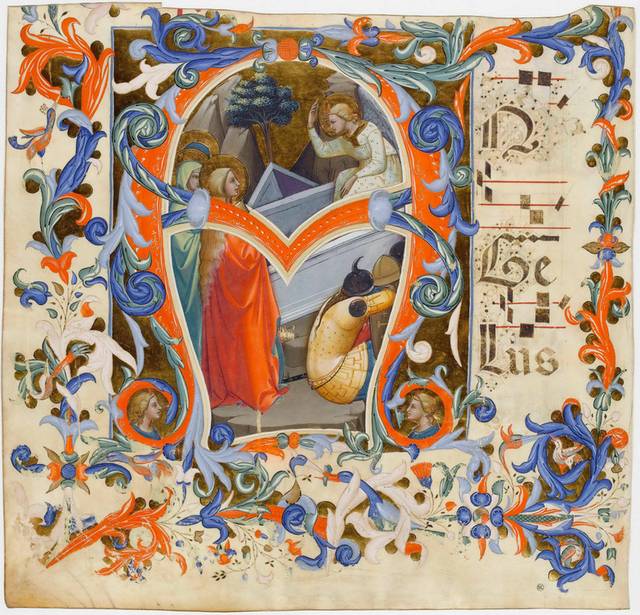 A
N
ge
lus